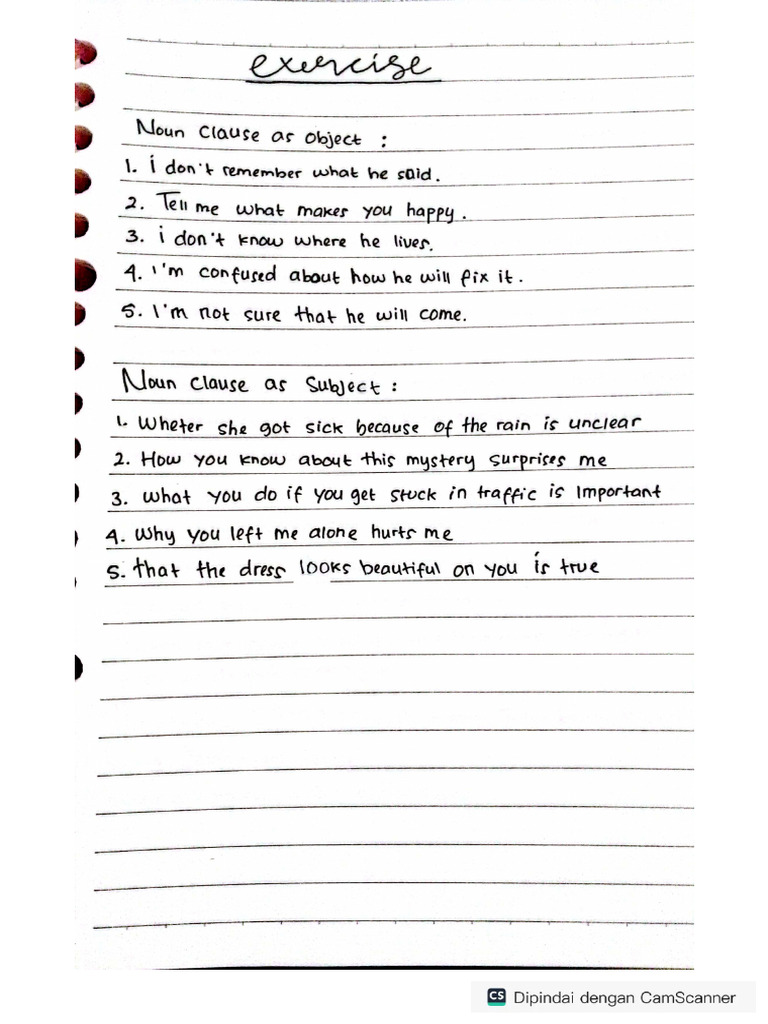 exercise
Noun Clause as Object :
1. i don't remember what he said.
2. Tell me what makes you happy.
3. i don't know where he lives.
4. I'm confused about how he will fix it.
5. I'm not sure that he will come.
Noun clause as Subject :
1. Wheter she got sick because of the rain is unclear
2. How you know about this mystery surprises me
3. what you do if you get stuck in traffic is Important
4. Why you left me alone hurts me
5. that the dress looks beautiful on you is true
CS Dipindai dengan CamScanner